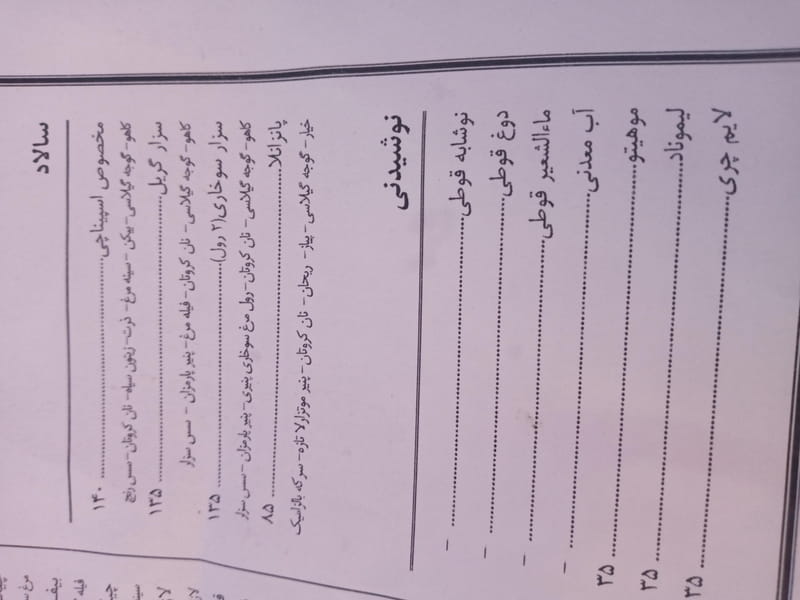 سالاد
مخصوص اسپیناچی ........ ۱۴۰
کاهو - گوجه گیلاسی - بیکن - سینه مرغ - ذرت - زیتون سیاه - نان کروتان - سس رنچ
سزار گریل ........ ۱۳۵
کاهو - گوجه گیلاسی - نان کروتان - فیله مرغ - پنیر پارمزان - سس سزار
سزار سوخاری (۲ رول) ........ ۱۳۵
کاهو - گوجه گیلاسی - نان کروتان - رول مرغ سوخاری پنیری - پنیر پارمزان - سس سزار
پانزانلا ........ ۸۵
خیار - گوجه گیلاسی - پیاز - ریحان - نان کروتان - پنیر موتزارلا تازه - سرکه بالزامیک
نوشیدنی
نوشابه قوطی ........ -
دوغ قوطی ........ -
ماءالشعیر قوطی ........ -
آب معدنی ........ -
موهیتو ........ ۳۵
لیموناد ........ ۳۵
لایم چری ........ ۳۵